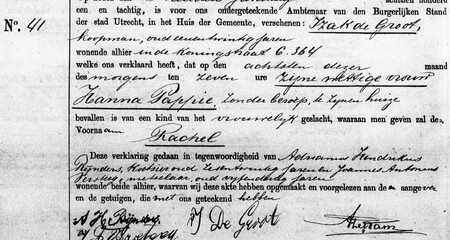 achttien honderd
en tachtig, is voor ons ondergeteekende Ambtenaar van den Burgerlijken Stand
der stad Utrecht, in het Huis der Gemeente, verschenen: Izak de Groot,
No. 41
koopman, oud een en twintig jaren
wonende alhier in de Koningstraat C. 364
welke ons verklaard heeft, dat op den achtsten dezer maand
des morgens ten zeven ure zijne wettige vrouw
Hanna Pappie, zonder beroep, te zijnen huize
bevallen is van een kind van het vrouwelijk geslacht, waaraan men geven zal de
Voornaam Rachel
Deze verklaring gedaan in tegenwoordigheid van Adrianus Hendrikus
Rijnders, oud jaren en Joannes Antonius
oud jaren
wonende beide alhier, waarvan wij deze akte hebben opgemaakt en voorgelezen aan de aangever
en de getuigen, die met ons geteekend hebben
A H Rijnders
I De Groot